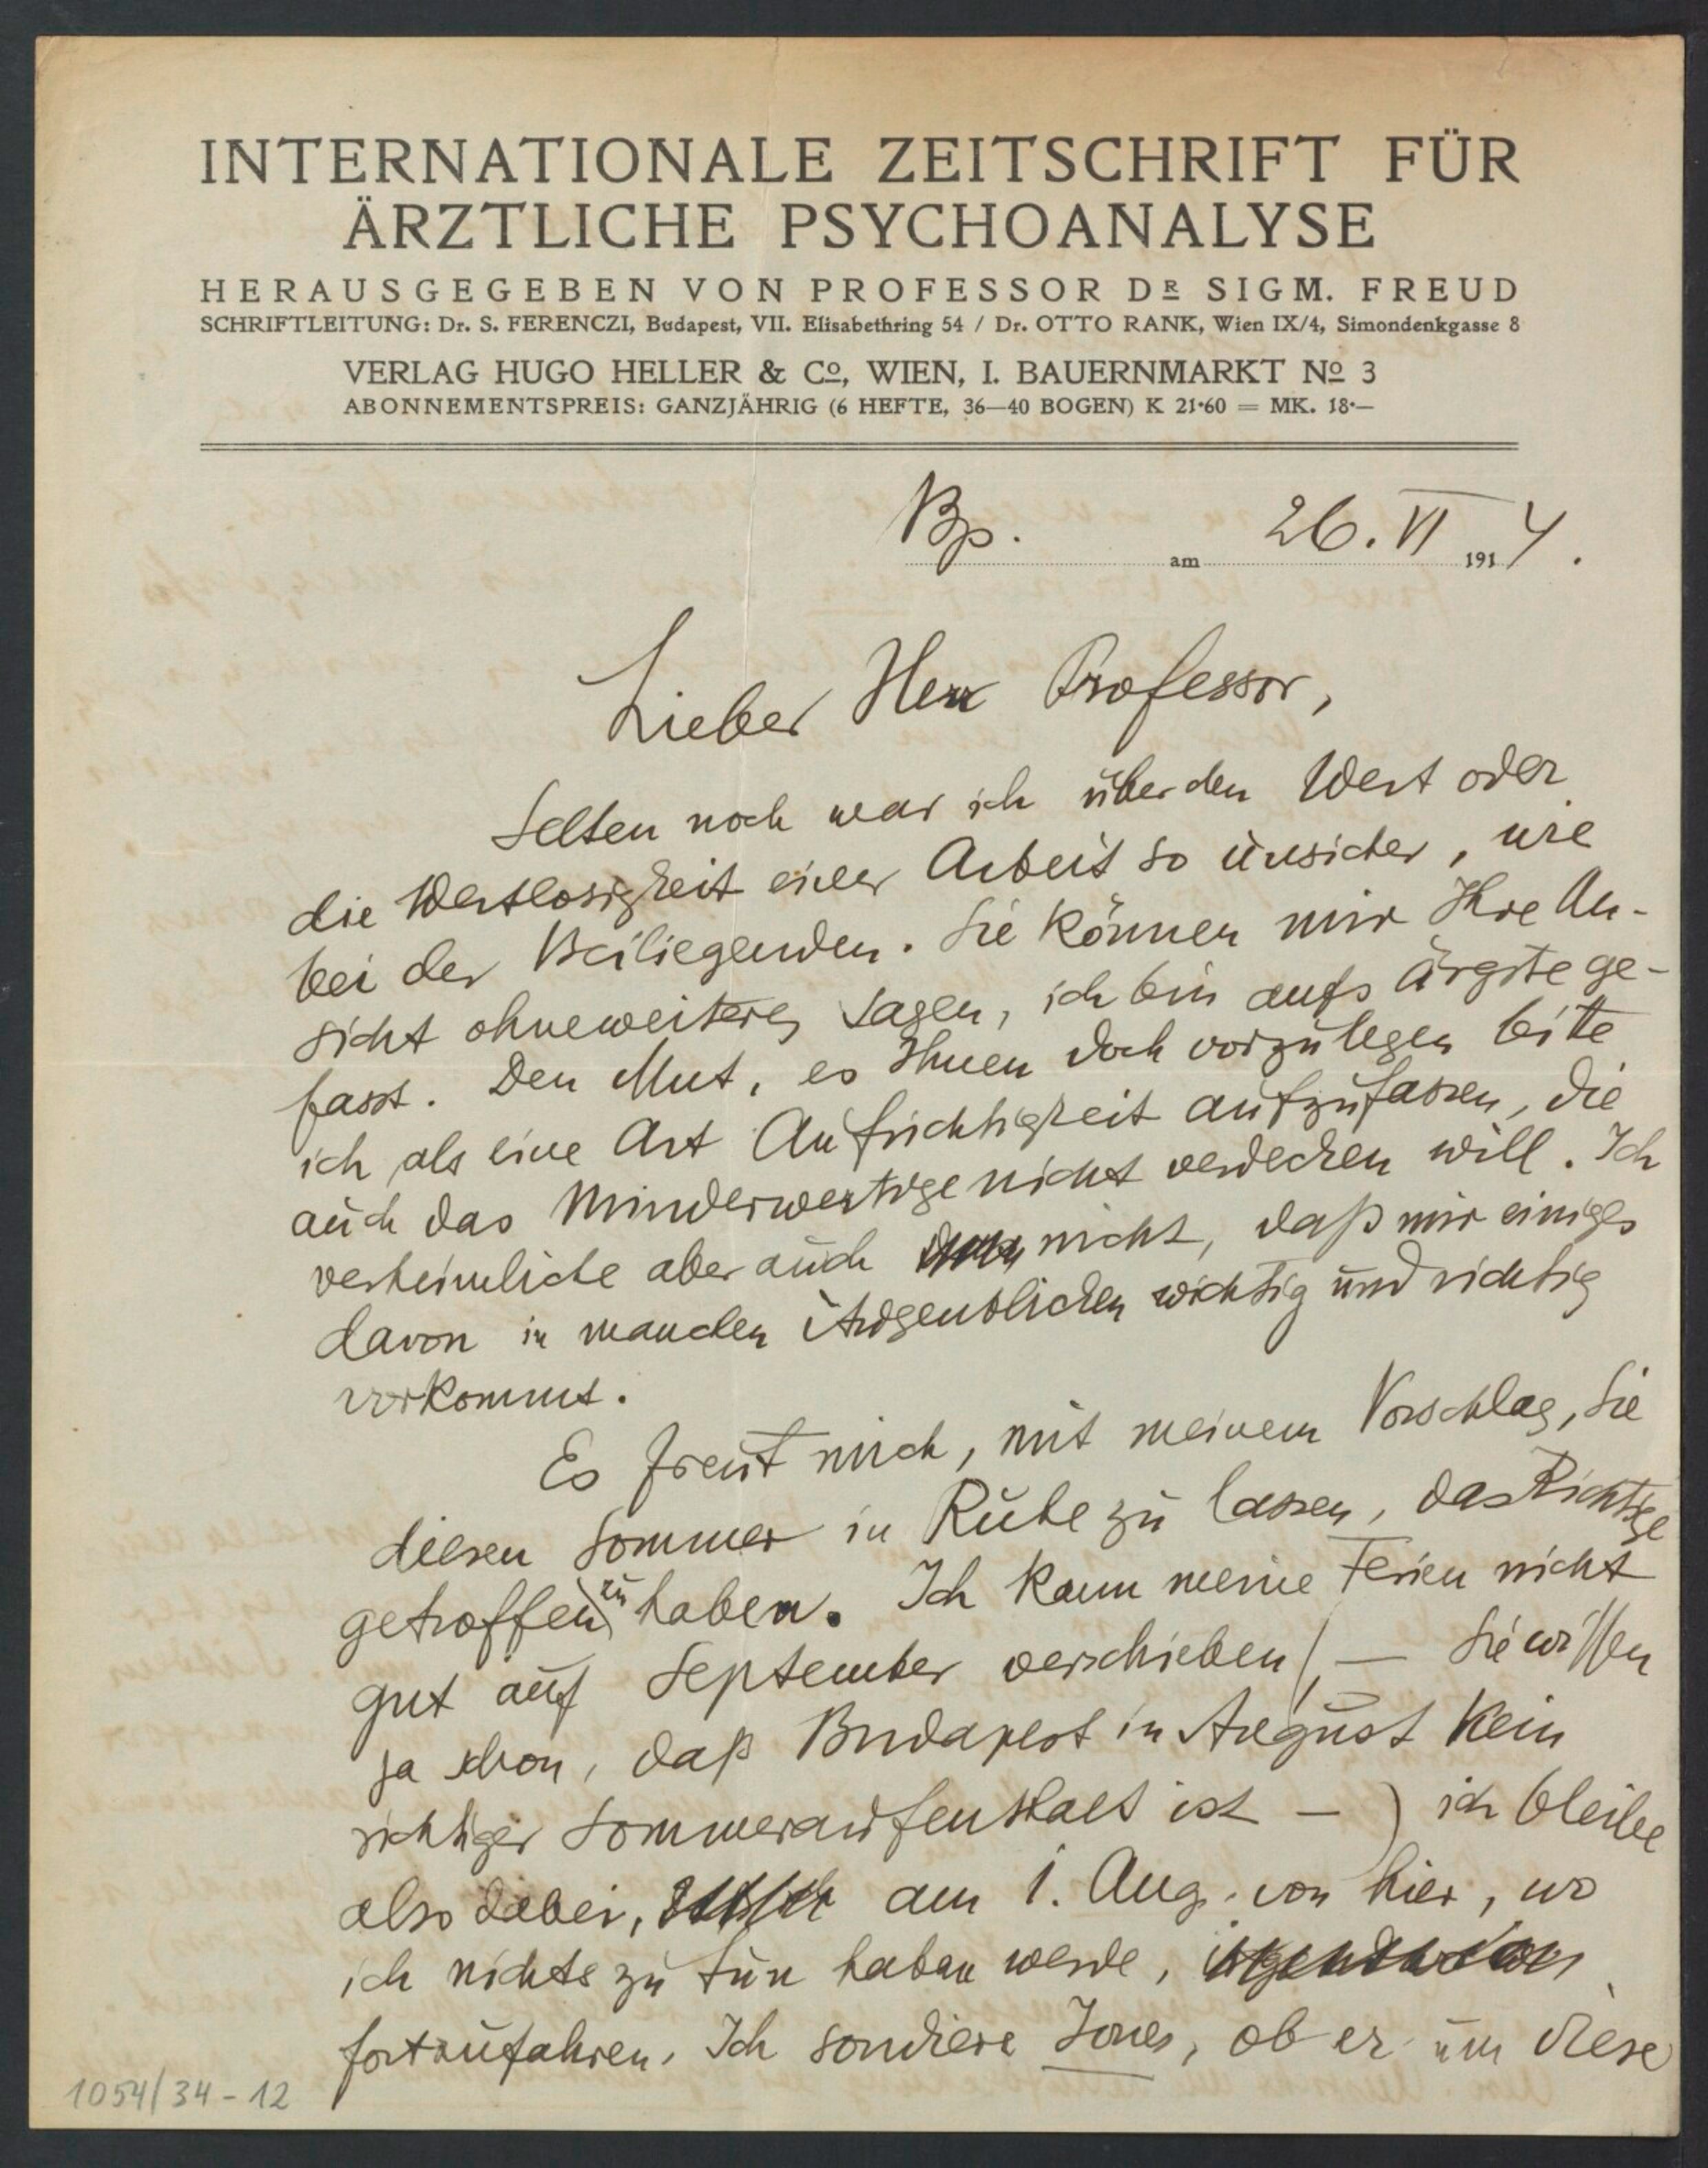 INTERNATIONALE ZEITSCHRIFT FÜR
ÄRZTLICHE PSYCHOANALYSE
HERAUSGEGEBEN VON PROFESSOR DR SIGM. FREUD
SCHRIFTLEITUNG: Dr. S. FERENCZI, Budapest, VII. Elisabethring 54 / Dr. OTTO RANK, Wien IX/4, Simondenkgasse 8
VERLAG HUGO HELLER & Co, WIEN, I. BAUERNMARKT No 3
ABONNEMENTSPREIS: GANZJÄHRIG (6 HEFTE, 36—40 BOGEN) K 21·60 = MK. 18·—
Bp. am 26. VI 1914.
Lieber Herr Professor,
Selten noch war ich über den Wert oder
die Wertlosigkeit einer Arbeit so unsicher, wie
bei der Beiliegenden. Sie können mir Ihre An-
sicht ohneweiteres sagen, ich bin aufs Ärgste ge-
fasst. Den Mut, es Ihnen doch vorzulegen bitte
ich als eine Art Aufrichtigkeit aufzufassen, die
auch das Minderwertige nicht verdecken will. Ich
verheimliche aber auch nicht, daß mir einiges
davon in manchen Augenblicken wichtig und richtig
vorkommt.
Es freut mich, mit meinem Vorschlag, Sie
diesen Sommer in Ruhe zu lassen, das Richtige
getroffen zu haben. Ich kann meine Ferien nicht
gut auf September verschieben (— Sie wissen
ja schon, daß Budapest in August kein
richtiger Sommeraufenthalt ist —) ich bleibe
also dabei, am 1. Aug. von hier, wo
ich nichts zu tun haben werde,
fortzufahren. Ich sondiere Jones, ob er um diese
1054/34-12